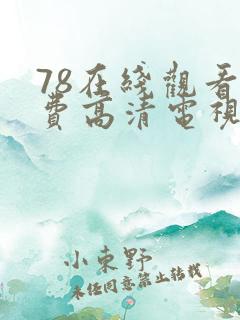 78在綫觀看
費高清電視
小東野
未經同意禁止轉載